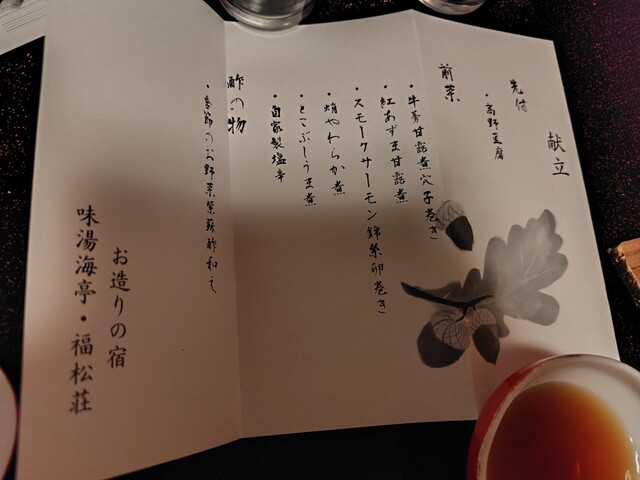 献立
先付
・高野豆腐
前菜
・牛蒡甘露煮穴子巻き
・紅あずま甘露煮
・スモークサーモン錦糸卵巻き
・蛸やわらか煮
・とこぶしうま煮
・自家製塩辛
酢の物
・季節のお野菜紫蘇酢和え
お造りの宿
味湯海亭・福松荘